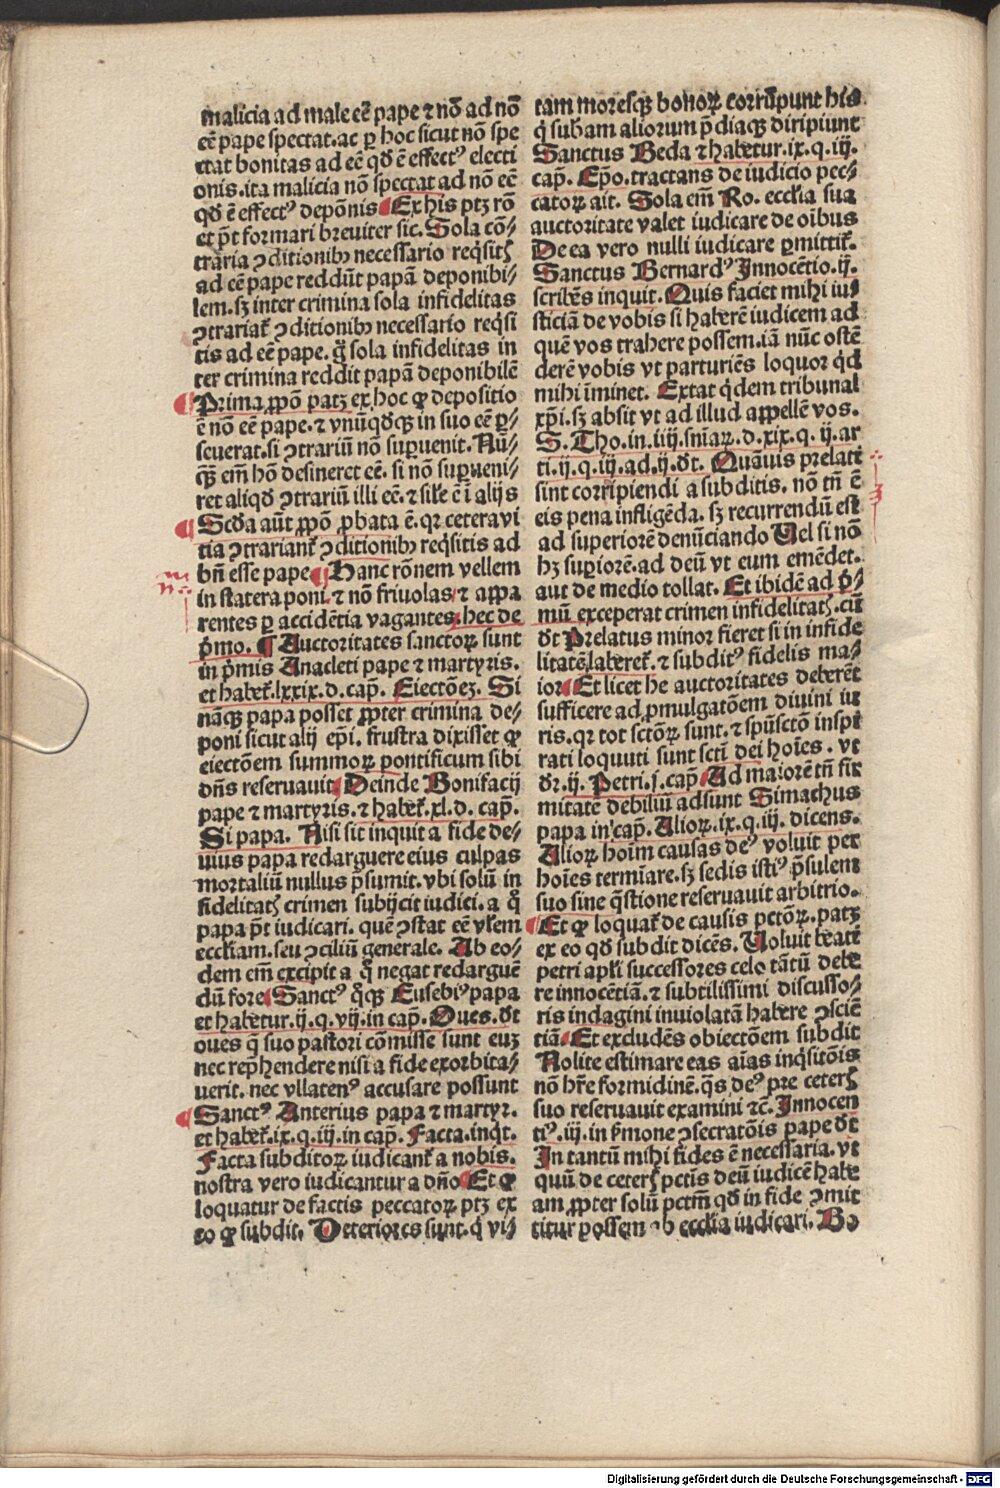 malicia ad male eē pape ⁊ nō ad nō
eē pape spectat. ac ꝑ hoc sicut nō spe
ctat bonitas ad eē qd̄ ē effectꝰ electi
onis. ita malicia nō spectat ad nō eē
qd̄ ē effectꝰ depōnis Ex his ptꝫ rō
et p̄t formari breuiter sic. Sola cō⸗
traria ꝯditionibꝰ necessario reqͥsitꝭ
ad eē pape reddūt papā deponibi⸗
lem. sꝫ inter crimina sola infidelitas
ꝯtrariat᷑ ꝯditionibꝰ necessario reqͥsi
tis ad eē pape. gͦ sola infidelitas in
ter crimina reddit papā deponibilē
Prima ꝓpō patꝫ ex hoc ꝙ depositio
ē nō eē pape. ⁊ vnūqd̄qꝫ in suo eē ꝑ⸗
seuerat. si ꝯtrariū nō suꝑuenit. Nū⸗
qͣꝫ em̄ hō desineret eē. si nō suꝑueni⸗
ret aliqd̄ ꝯtrariū illi eē. ⁊ sil̓e ē ī alijs
Scd̓a aūt ꝓpō ꝓbata ē. qꝛ cetera vi
tia ꝯtrariant᷑ ꝯditionibꝰ reqͥsitis ad
bn̄ esse pape Hanc rōnem vellem
in statera poni. ⁊ nō friuolas ⁊ appa
rentes ꝑ accidētia vagantes. hec de
pͥmo. ¶ Auctoritates sanctoꝝ sunt
in pͥmis Anacleti pape ⁊ martyris.
et habet᷑. lxxix. d. cap̄. Eiectōeꝫ. Si
nāqꝫ papa posset ꝓpter crimina de⸗
poni sicut alij ep̄i. frustra dixisset ꝙ
eiectōem summoꝝ pontificum sibi
dn̄s reseruauit Deinde Bonifacij
pape ⁊ martyris. ⁊ habet᷑. xl. d. cap̄.
Si papa. Nisi sit inquit a fide de⸗
uius papa redarguere eius culpas
mortaliū nullus p̄sumit. vbi solū in
fidelitatꝭ crimen subijcit iudici. a qͦ
papa p̄t iudicari. quē ꝯstat eē vl̓em
eccl̓iam. seu ꝯciliū generale. Ab eo⸗
dem em̄ excipit a qͦ negat redarguē
dū fore Sanctꝰ qͦqꝫ Eusebiꝰ papa
et habetur. ij. q. vij. in cap̄. Oues. d̓t
oues qͣ suo pastori cōmisse sunt euꝫ
nec rep̄hendere nisi a fide exorbita⸗
uerit. nec vllatenꝰ accusare possunt
Sanctꝰ Anterius papa ⁊ martyr.
et habet᷑. ix. q. iij. in cap̄. Facta. inqͥt.
Facta subditoꝝ iudicant᷑ a nobis.
nostra vero iudicantur a dn̄o Et ꝙ
loquatur de factis peccatoꝝ ptꝫ ex
eo ꝙ subdit. Deteriores sunt. qͥ vi⸗
tam moresqꝫ bonoꝝ corrūpunt his
qͥ sub̄am aliorum p̄diaqꝫ diripiunt
Sanctus Beda ⁊ habetur. ix. q. iij.
cap̄. Ep̄o. tractans de iudicio pec⸗
catoꝝ ait. Sola em̄ Ro. eccl̓ia sua
auctoritate valet iudicare de oībus
De ea vero nulli iudicare ꝑmittit᷑.
Sanctus Bernardꝰ Innocētio. ij.
scribēs inquit. Quis faciet mihi iu⸗
sticiā de vobis si haberē iudicem ad
quē vos trahere possem. iā nūc ostē
derē vobis vt parturiēs loquor qͥd
mihi īminet. Extat qͥdem tribunal
xp̄i. sꝫ absit vt ad illud appellē vos.
S. Tho. in. iiij. sn̄iaꝝ. d. xix. q. ij. ar
ti. ij. q. iij. ad. ij. d̓t. Quāuis prelati
sint corripiendi a subditis. nō tn̄ ē
eis pena infligēda. sꝫ recurrendū est
ad superiorē denūciando Uel si nō
hꝫ suꝑiorē. ad deū vt eum emēdet.
aut de medio tollat. Et ibidē ad pͥ⸗
mū exceperat crimen infidelitatꝭ. cū
d̓t Prelatus minor fieret si in infide
litatē laberet᷑. ⁊ subditꝰ fidelis ma⸗
ior Et licet he auctoritates deberēt
sufficere ad ꝓmulgatōem diuini iu
ris. qꝛ tot sctōꝝ sunt. ⁊ spūsctō inspi
rati loquuti sunt scti̅ dei hoīes. vt
d̓r. ij. Petri. j. cap̄ Ad maiorē tn̄ fir
mitatē debiliū adsunt Simachus
papa in cap̄. Alioꝝ. ix. q. iij. dicens.
Alioꝝ hoīm causas deꝰ voluit per
hoīes termiare. sꝫ sedis istiꝰ p̄sulem
suo sine qͣstione reseruauit arbitrio.
Et ꝙ loquat᷑ de causis pctōꝝ. patꝫ
ex eo qd̄ subdit dicēs. Uoluit beati
petri apl̓i successores celo tātū debe
re innocētiā. ⁊ subtilissimi discusso⸗
ris indagini inuiolatā habere ꝯsciē
tiā Et excludēs obiectōem subdit
Nolite estimare eas aīas inqͥsitōis
nō hr̄e formidinē. qͣs deꝰ pre ceterꝭ
suo reseruauit examini ⁊c̄. Innocen
tiꝰ. iij. in s̓mone ꝯsecratōis pape d̓t
In tantū mihi fides ē necessaria. vt
quū de ceterꝭ pctīs deū iudicē habe
am ꝓpter solū pctm̄ qd̄ in fide ꝯmit
titur possem ab eccl̓ia iudicari. Bo
Digitalisierung gefördert durch die Deutsche Forschungsgemeinschaft - DFG